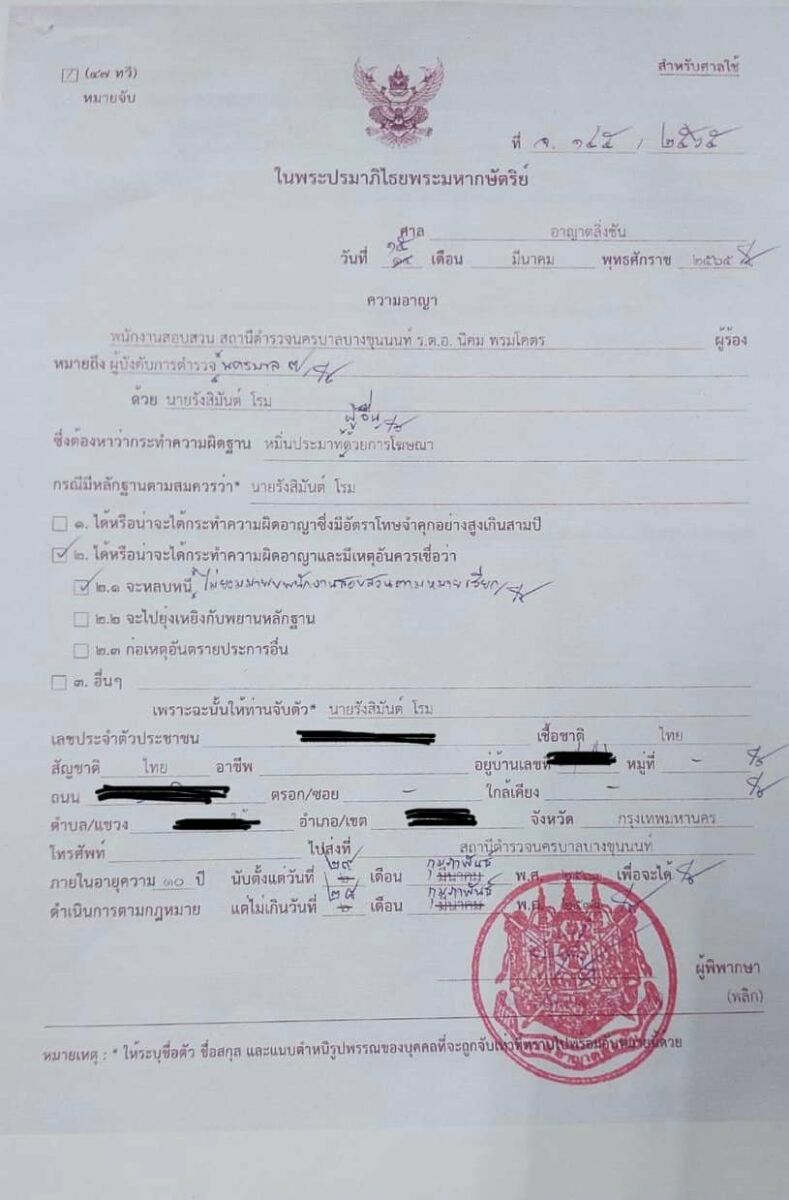 (๔๗ ทวิ)
หมายจับ
สำหรับศาลใช้
ที่ จ. ๑๔๕ / ๒๕๖๕
ในพระปรมาภิไธยพระมหากษัตริย์
ศาล อาญาตลิ่งชัน
๑๕
วันที่ ๑๔ เดือน มีนาคม พุทธศักราช ๒๕๖๕
ความอาญา
พนักงานสอบสวน สถานีตำรวจนครบาลบางขุนนนท์ ร.ต.อ. นิคม พรมโคตร ผู้ร้อง
หมายถึง ผู้บังคับการตำรวจนครบาล ๗
ด้วย นายรังสิมันต์ โรม
ผู้อื่น
ซึ่งต้องหาว่ากระทำความผิดฐาน หมิ่นประมาทด้วยการโฆษณา
กรณีมีหลักฐานตามสมควรว่า* นายรังสิมันต์ โรม
๑. ได้หรือน่าจะได้กระทำความผิดอาญาซึ่งมีอัตราโทษจำคุกอย่างสูงเกินสามปี
๒. ได้หรือน่าจะได้กระทำความผิดอาญาและมีเหตุอันควรเชื่อว่า
๒.๑ จะหลบหนี ไม่ยอมมาพบพนักงานสอบสวนตามหมายเรียก
๒.๒ จะไปยุ่งเหยิงกับพยานหลักฐาน
๒.๓ ก่อเหตุอันตรายประการอื่น
๓. อื่นๆ
เพราะฉะนั้นให้ท่านจับตัว* นายรังสิมันต์ โรม
เลขประจำตัวประชาชน เชื้อชาติ ไทย
สัญชาติ ไทย อาชีพ อยู่บ้านเลขที่ หมู่ที่ -
ถนน ตรอก/ซอย - ใกล้เคียง -
ตำบล/แขวง อำเภอ/เขต จังหวัด กรุงเทพมหานคร
โทรศัพท์ ไปส่งที่ สถานีตำรวจนครบาลบางขุนนนท์
๒๙ กุมภาพันธ์
ภายในอายุความ ๑๐ ปี นับตั้งแต่วันที่ เดือน มีนาคม พ.ศ. เพื่อจะได้
๒๘ กุมภาพันธ์
ดำเนินการตามกฎหมาย แต่ไม่เกินวันที่ เดือน มีนาคม พ.ศ.
ผู้พิพากษา
(พลิก)
หมายเหตุ : * ให้ระบุชื่อตัว ชื่อสกุล และแนบตำหนิรูปพรรณของบุคคลที่จะถูกจับเท่าที่ทราบไปพร้อมกับหมายนี้ด้วย